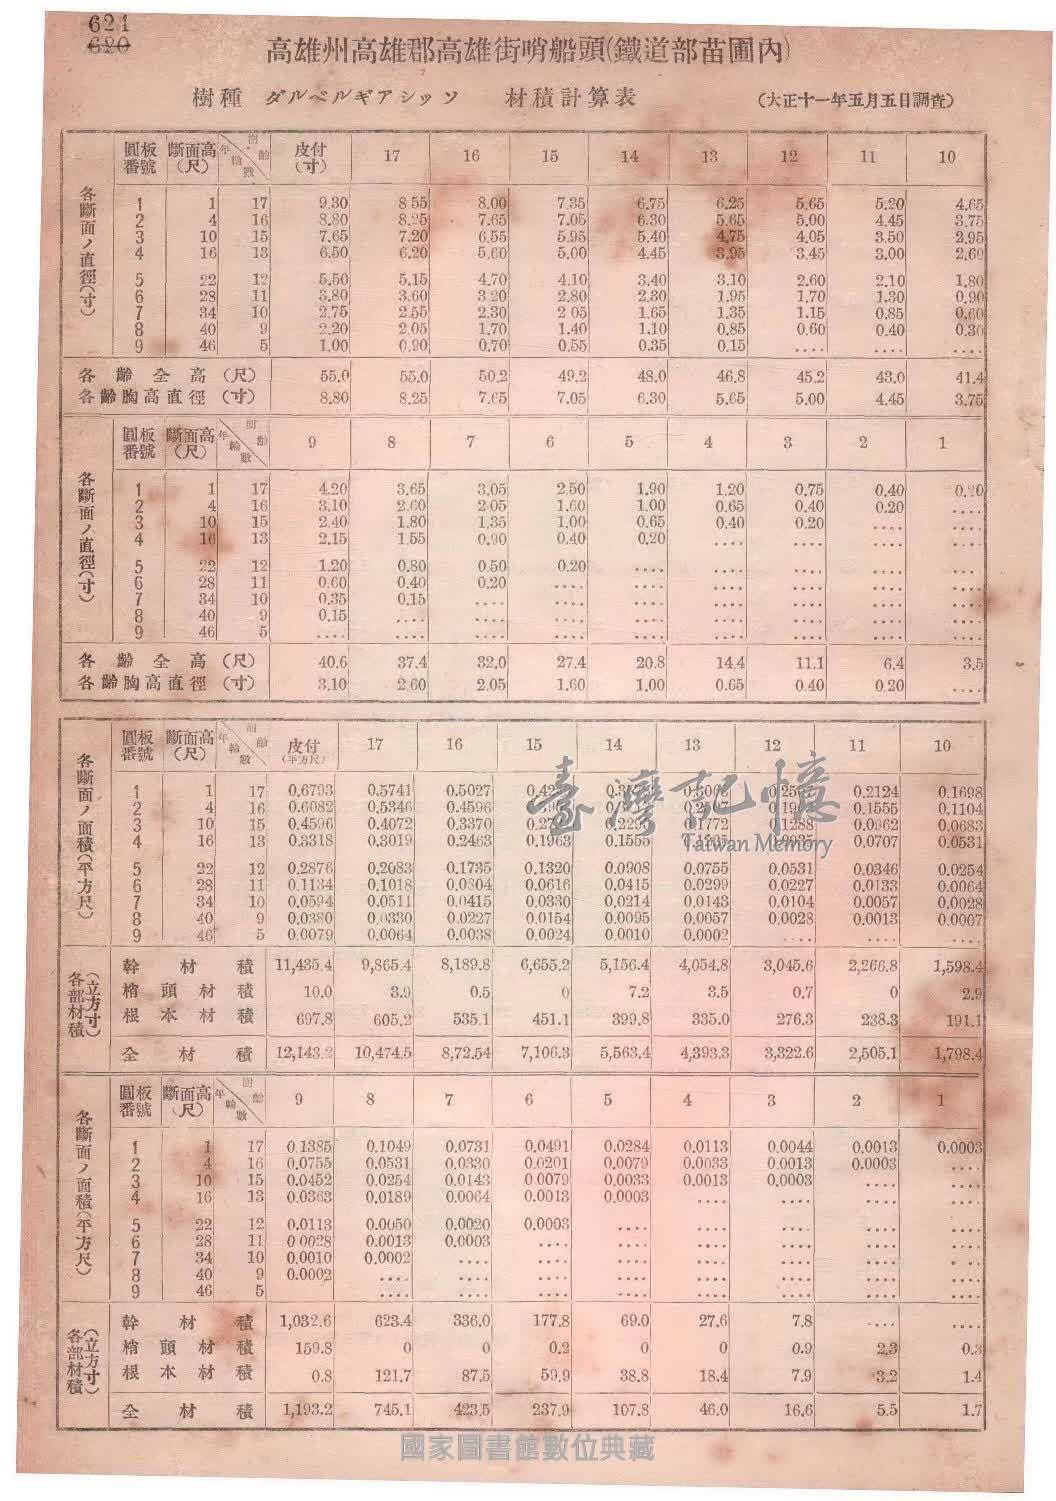 621
620
高雄州高雄郡高雄街哨船頭(鐵道部苗圃內)
樹種 ダルベルギアシッソ 材積計算表 (大正十一年五月五日調査)
各斷面ノ直徑(寸)
圓板番號 斷面高(尺) 年輪數 樹齡 皮付(寸) 17 16 15 14 13 12 11 10
1 1 17 9.30 8.55 8.00 7.35 6.75 6.25 5.65 5.20 4.65
2 4 16 8.80 8.25 7.65 7.05 6.30 5.65 5.00 4.45 3.75
3 10 15 7.65 7.20 6.55 5.95 5.40 4.75 4.05 3.50 2.95
4 16 13 6.50 6.20 5.60 5.00 4.45 3.95 3.45 3.00 2.60
5 22 12 5.50 5.15 4.70 4.10 3.40 3.10 2.60 2.10 1.80
6 28 11 3.80 3.60 3.20 2.80 2.30 1.95 1.70 1.30 0.90
7 34 10 2.75 2.55 2.30 2.05 1.65 1.35 1.15 0.85 0.60
8 40 9 2.20 2.05 1.70 1.40 1.10 0.85 0.60 0.40 0.30
9 46 5 1.00 0.90 0.70 0.55 0.35 0.15 .... .... ....
各齡全高(尺) 55.0 55.0 50.2 49.2 48.0 46.8 45.2 43.0 41.4
各齡胸高直徑(寸) 8.80 8.25 7.65 7.05 6.30 5.65 5.00 4.45 3.75
各斷面ノ直徑(寸)
圓板番號 斷面高(尺) 年輪數 樹齡 9 8 7 6 5 4 3 2 1
1 1 17 4.20 3.65 3.05 2.50 1.90 1.20 0.75 0.40 0.20
2 4 16 3.10 2.60 2.05 1.60 1.00 0.65 0.40 0.20 ....
3 10 15 2.40 1.80 1.35 1.00 0.65 0.40 0.20 .... ....
4 16 13 2.15 1.55 0.90 0.40 0.20 .... .... .... ....
5 22 12 1.20 0.80 0.50 0.20 .... .... .... .... ....
6 28 11 0.60 0.40 0.20 .... .... .... .... .... ....
7 34 10 0.35 0.15 .... .... .... .... .... .... ....
8 40 9 0.15 .... .... .... .... .... .... .... ....
9 46 5 .... .... .... .... .... .... .... .... ....
各齡全高(尺) 40.6 37.4 32.0 27.4 20.8 14.4 11.1 6.4 3.5
各齡胸高直徑(寸) 3.10 2.60 2.05 1.60 1.00 0.65 0.40 0.20 ....
各斷面ノ面積(平方尺)
圓板番號 斷面高(尺) 年輪數 樹齡 皮付(平方尺) 17 16 15 14 13 12 11 10
1 1 17 0.6793 0.5741 0.5027 0.2124 0.1698
2 4 16 0.6082 0.5346 0.4596 0.1555 0.1104
3 10 15 0.4596 0.4072 0.3370 0.1772 0.1288 0.0962 0.0683
4 16 13 0.3318 0.3019 0.2463 0.1963 0.1555 0.0707 0.0531
5 22 12 0.2876 0.2083 0.1735 0.1320 0.0908 0.0755 0.0531 0.0346 0.0254
6 28 11 0.1134 0.1018 0.0804 0.0616 0.0415 0.0299 0.0227 0.0133 0.0064
7 34 10 0.0594 0.0511 0.0415 0.0330 0.0214 0.0143 0.0104 0.0057 0.0028
8 40 9 0.0380 0.0330 0.0227 0.0154 0.0095 0.0057 0.0028 0.0013 0.0007
9 46 5 0.0079 0.0064 0.0038 0.0024 0.0010 0.0002 .... .... ....
臺灣記憶
Taiwan Memory
各部材積(立方寸)
幹材積 11,435.4 9,865.4 8,189.8 6,655.2 5,156.4 4,054.8 3,045.6 2,266.8 1,598.4
梢頭材積 10.0 3.9 0.5 0 7.2 3.5 0.7 0 2.9
根本材積 697.8 605.2 535.1 451.1 399.8 335.0 276.3 238.3 191.1
全材積 12,143.2 10,474.5 8,72.54 7,106.3 5,563.4 4,393.3 3,322.6 2,505.1 1,798.4
各斷面ノ面積(平方尺)
圓板番號 斷面高(尺) 年輪數 樹齡 9 8 7 6 5 4 3 2 1
1 1 17 0.1385 0.1049 0.0731 0.0491 0.0284 0.0113 0.0044 0.0013 0.0003
2 4 16 0.0755 0.0531 0.0330 0.0201 0.0079 0.0033 0.0013 0.0003 ....
3 10 15 0.0452 0.0254 0.0143 0.0079 0.0033 0.0013 0.0003 .... ....
4 16 13 0.0363 0.0189 0.0064 0.0013 0.0003 .... .... .... ....
5 22 12 0.0113 0.0050 0.0020 0.0003 .... .... .... .... ....
6 28 11 0.0028 0.0013 0.0003 .... .... .... .... .... ....
7 34 10 0.0010 0.0002 .... .... .... .... .... .... ....
8 40 9 0.0002 .... .... .... .... .... .... .... ....
9 46 5 .... .... .... .... .... .... .... ....
各部材積(立方寸)
幹材積 1,032.6 623.4 336.0 177.8 69.0 27.6 7.8 .... ....
梢頭材積 159.8 0 0 0.2 0 0 0.9 2.3 0.3
根本材積 0.8 121.7 87.5 59.9 38.8 18.4 7.9 3.2 1.4
全材積 1,193.2 745.1 423.5 237.9 107.8 46.0 16.6 5.5 1.7
國家圖書館數位典藏